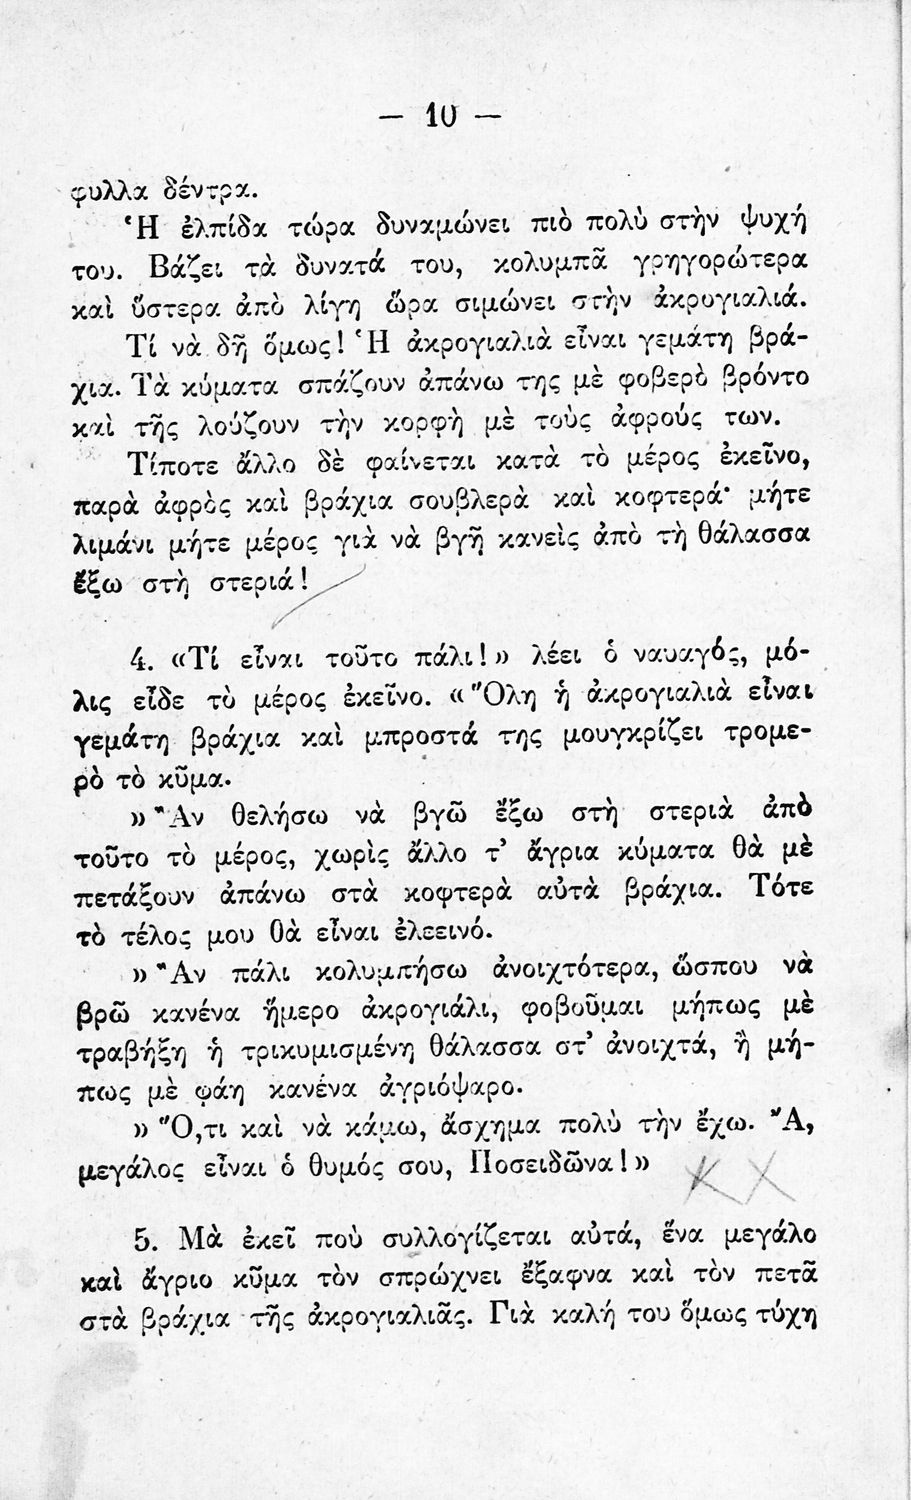 — 10 —
φυλλα δέντρα.
Ἡ ἐλπίδα τώρα δυναμώνει πιὸ πολὺ στὴν ψυχή
του. Βάζει τὰ δυνατά του, κολυμπᾶ γρηγορώτερα
καὶ ὕστερα ἀπὸ λίγη ὥρα σιμώνει στὴν ἀκρογιαλιά.
Τί νὰ δῆ ὅμως! Ἡ ἀκρογιαλιὰ εἶναι γεμάτη βρά-
χια. Τὰ κύματα σπάζουν ἀπάνω της μὲ φοβερὸ βρόντο
καὶ τῆς λούζουν τὴν κορφὴ μὲ τοὺς ἀφρούς των.
Τίποτε ἄλλο δὲ φαίνεται κατὰ τὸ μέρος ἐκεῖνο,
παρὰ ἀφρὸς καὶ βράχια σουβλερὰ καὶ κοφτερά· μήτε
λιμάνι μήτε μέρος γιὰ νὰ βγῆ κανεὶς ἀπὸ τὴ θάλασσα
ἔξω στὴ στεριά!
4. «Τί εἶναι τοῦτο πάλι!» λέει ὁ ναυαγός, μό-
λις εἶδε τὸ μέρος ἐκεῖνο. «Ὅλη ἡ ἀκρογιαλιὰ εἶναι
γεμάτη βράχια καὶ μπροστά της μουγκρίζει τρομε-
ρὸ τὸ κῦμα.
» Ἂν θελήσω νὰ βγῶ ἔξω στὴ στεριὰ ἀπὸ
τοῦτο τὸ μέρος, χωρὶς ἄλλο τ' ἄγρια κύματα θὰ μὲ
πετάξουν ἀπάνω στὰ κοφτερὰ αὐτὰ βράχια. Τότε
τὸ τέλος μου θὰ εἶναι ἐλεεινό.
» Ἂν πάλι κολυμπήσω ἀνοιχτότερα, ὥσπου νὰ
βρῶ κανένα ἥμερο ἀκρογιάλι, φοβοῦμαι μήπως μὲ
τραβήξη ἡ τρικυμισμένη θάλασσα στ' ἀνοιχτά, ἢ μή-
πως μὲ φάη κανένα ἀγριόψαρο.
» Ὅ,τι καὶ νὰ κάμω, ἄσχημα πολὺ τὴν ἔχω. Ἄ,
μεγάλος εἶναι ὁ θυμός σου, Ποσειδῶνα!»
5. Μὰ ἐκεῖ ποὺ συλλογίζεται αὐτά, ἕνα μεγάλο
καὶ ἄγριο κῦμα τὸν σπρώχνει ἔξαφνα καὶ τὸν πετᾶ
στὰ βράχια τῆς ἀκρογιαλιᾶς. Γιὰ καλή του ὅμως τύχη